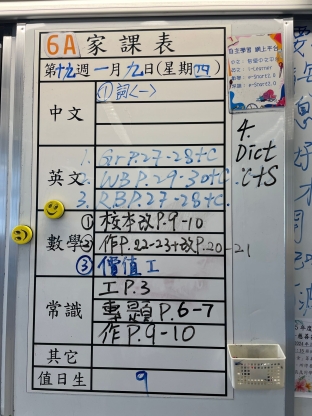 6A家課表
第十九週一月九日(星期四)
中文
①詞<一>
英文
1. Gr P.27-28+C.
2. WB P.29-30+C.
3. RB P.27-28+C.
4.
Dict
C+S
數學
①校本改P.9-10
②作P.22-23+改P.20-21
③價值工
常識
工P.3
專題P.6-7
作P.9-10
其它
值日生
9
自主學習 網上平台